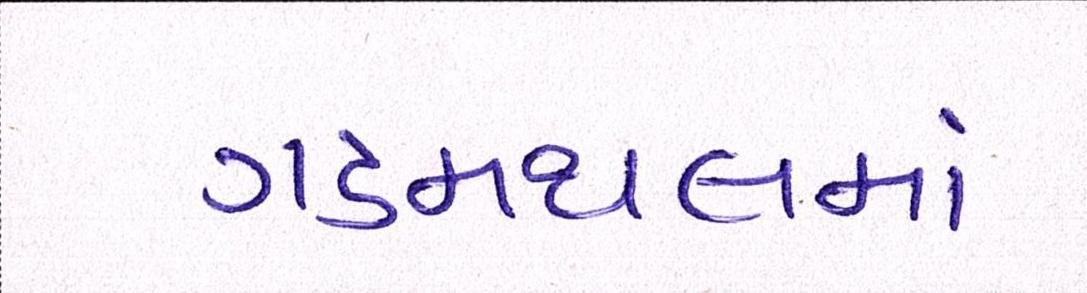 ગડમથલમાં